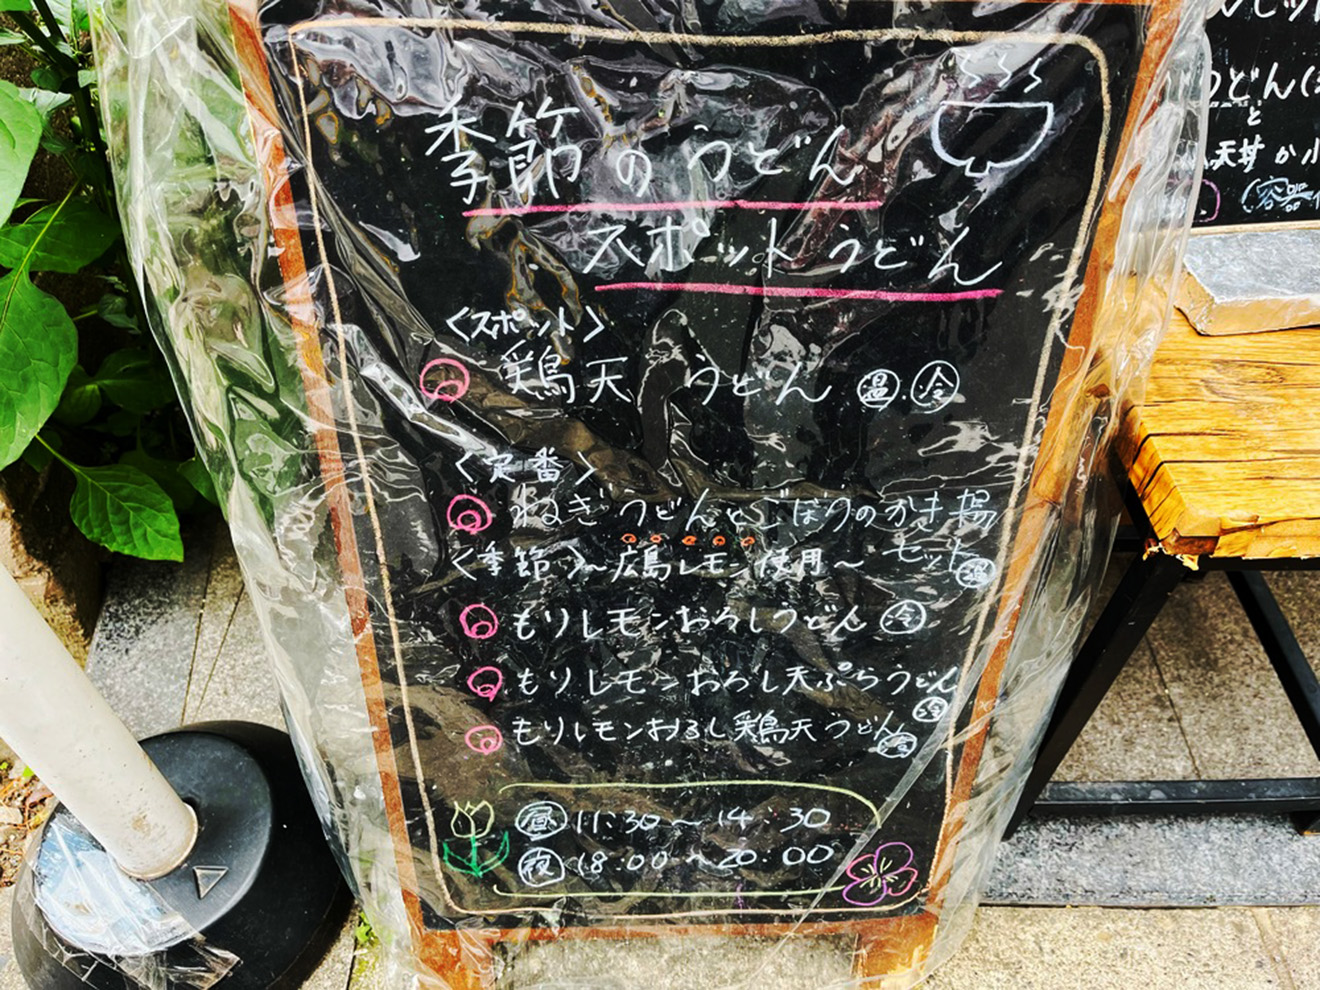 季節のうどん
スポットうどん
〈スポット〉
鶏天 うどん 温.冷
〈定番〉
ねぎうどんとごぼうのかき揚
セット 温
〈季節〉〜広島レモン使用〜
もりレモンおろしうどん 冷
もりレモンおろし天ぷらうどん
冷
もりレモンおろし鶏天うどん
冷
昼 11:30〜14:30
夜 18:00〜20:00
うどん
と
天丼か